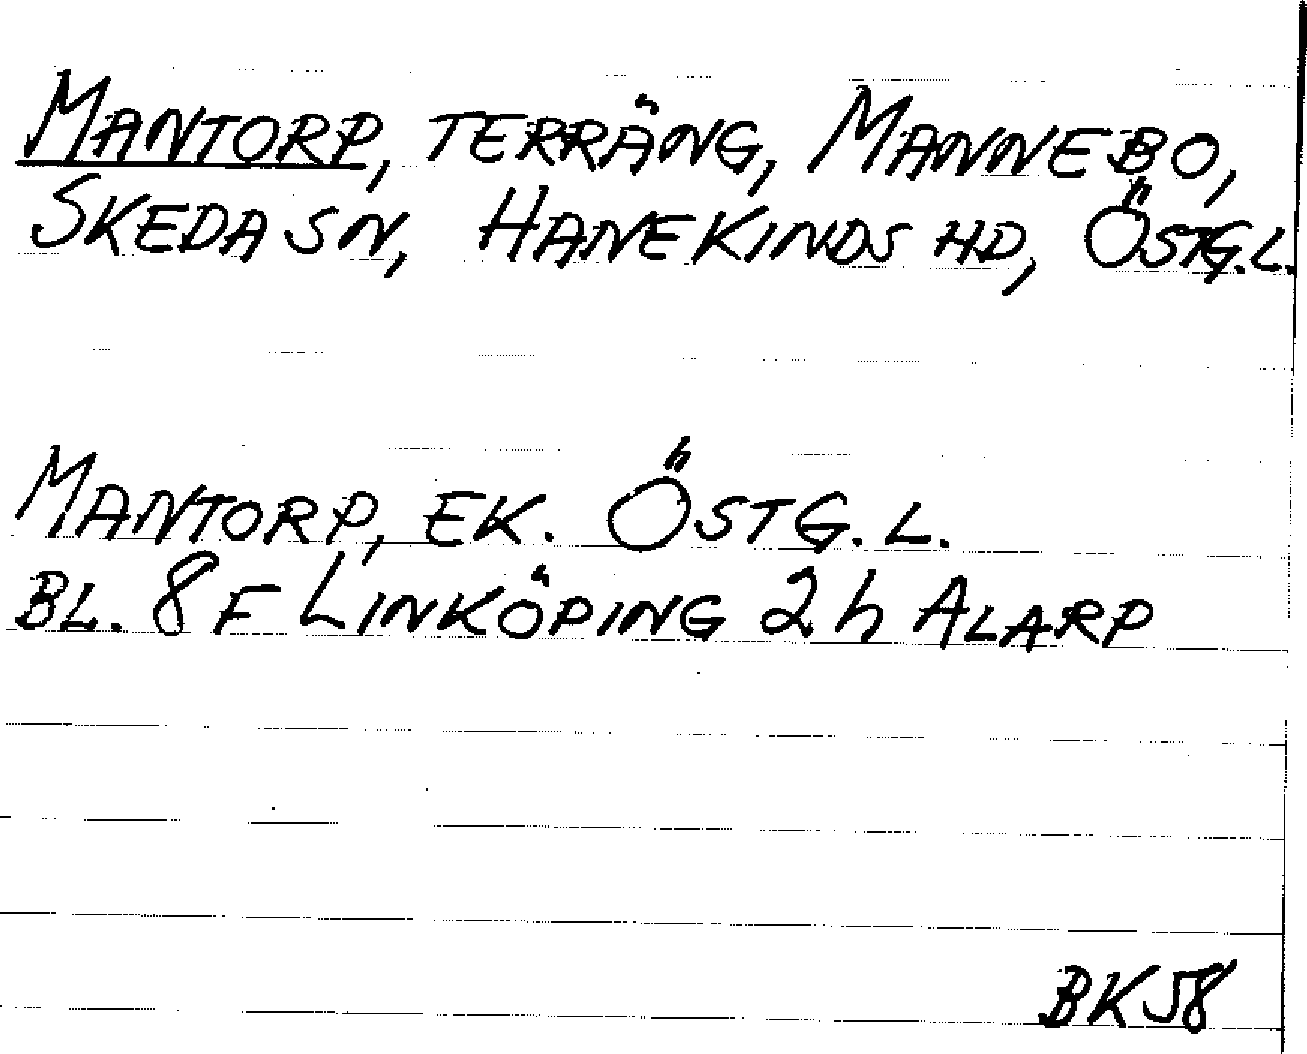 MANTORP, TERRÄNG, MANNEBO,
SKEDA SN, HANEKINDS HD, ÖSTG.L.
MANTORP, EK. ÖSTG. L.
BL. 8 F LINKÖPING 2 h ALARP
BK 58